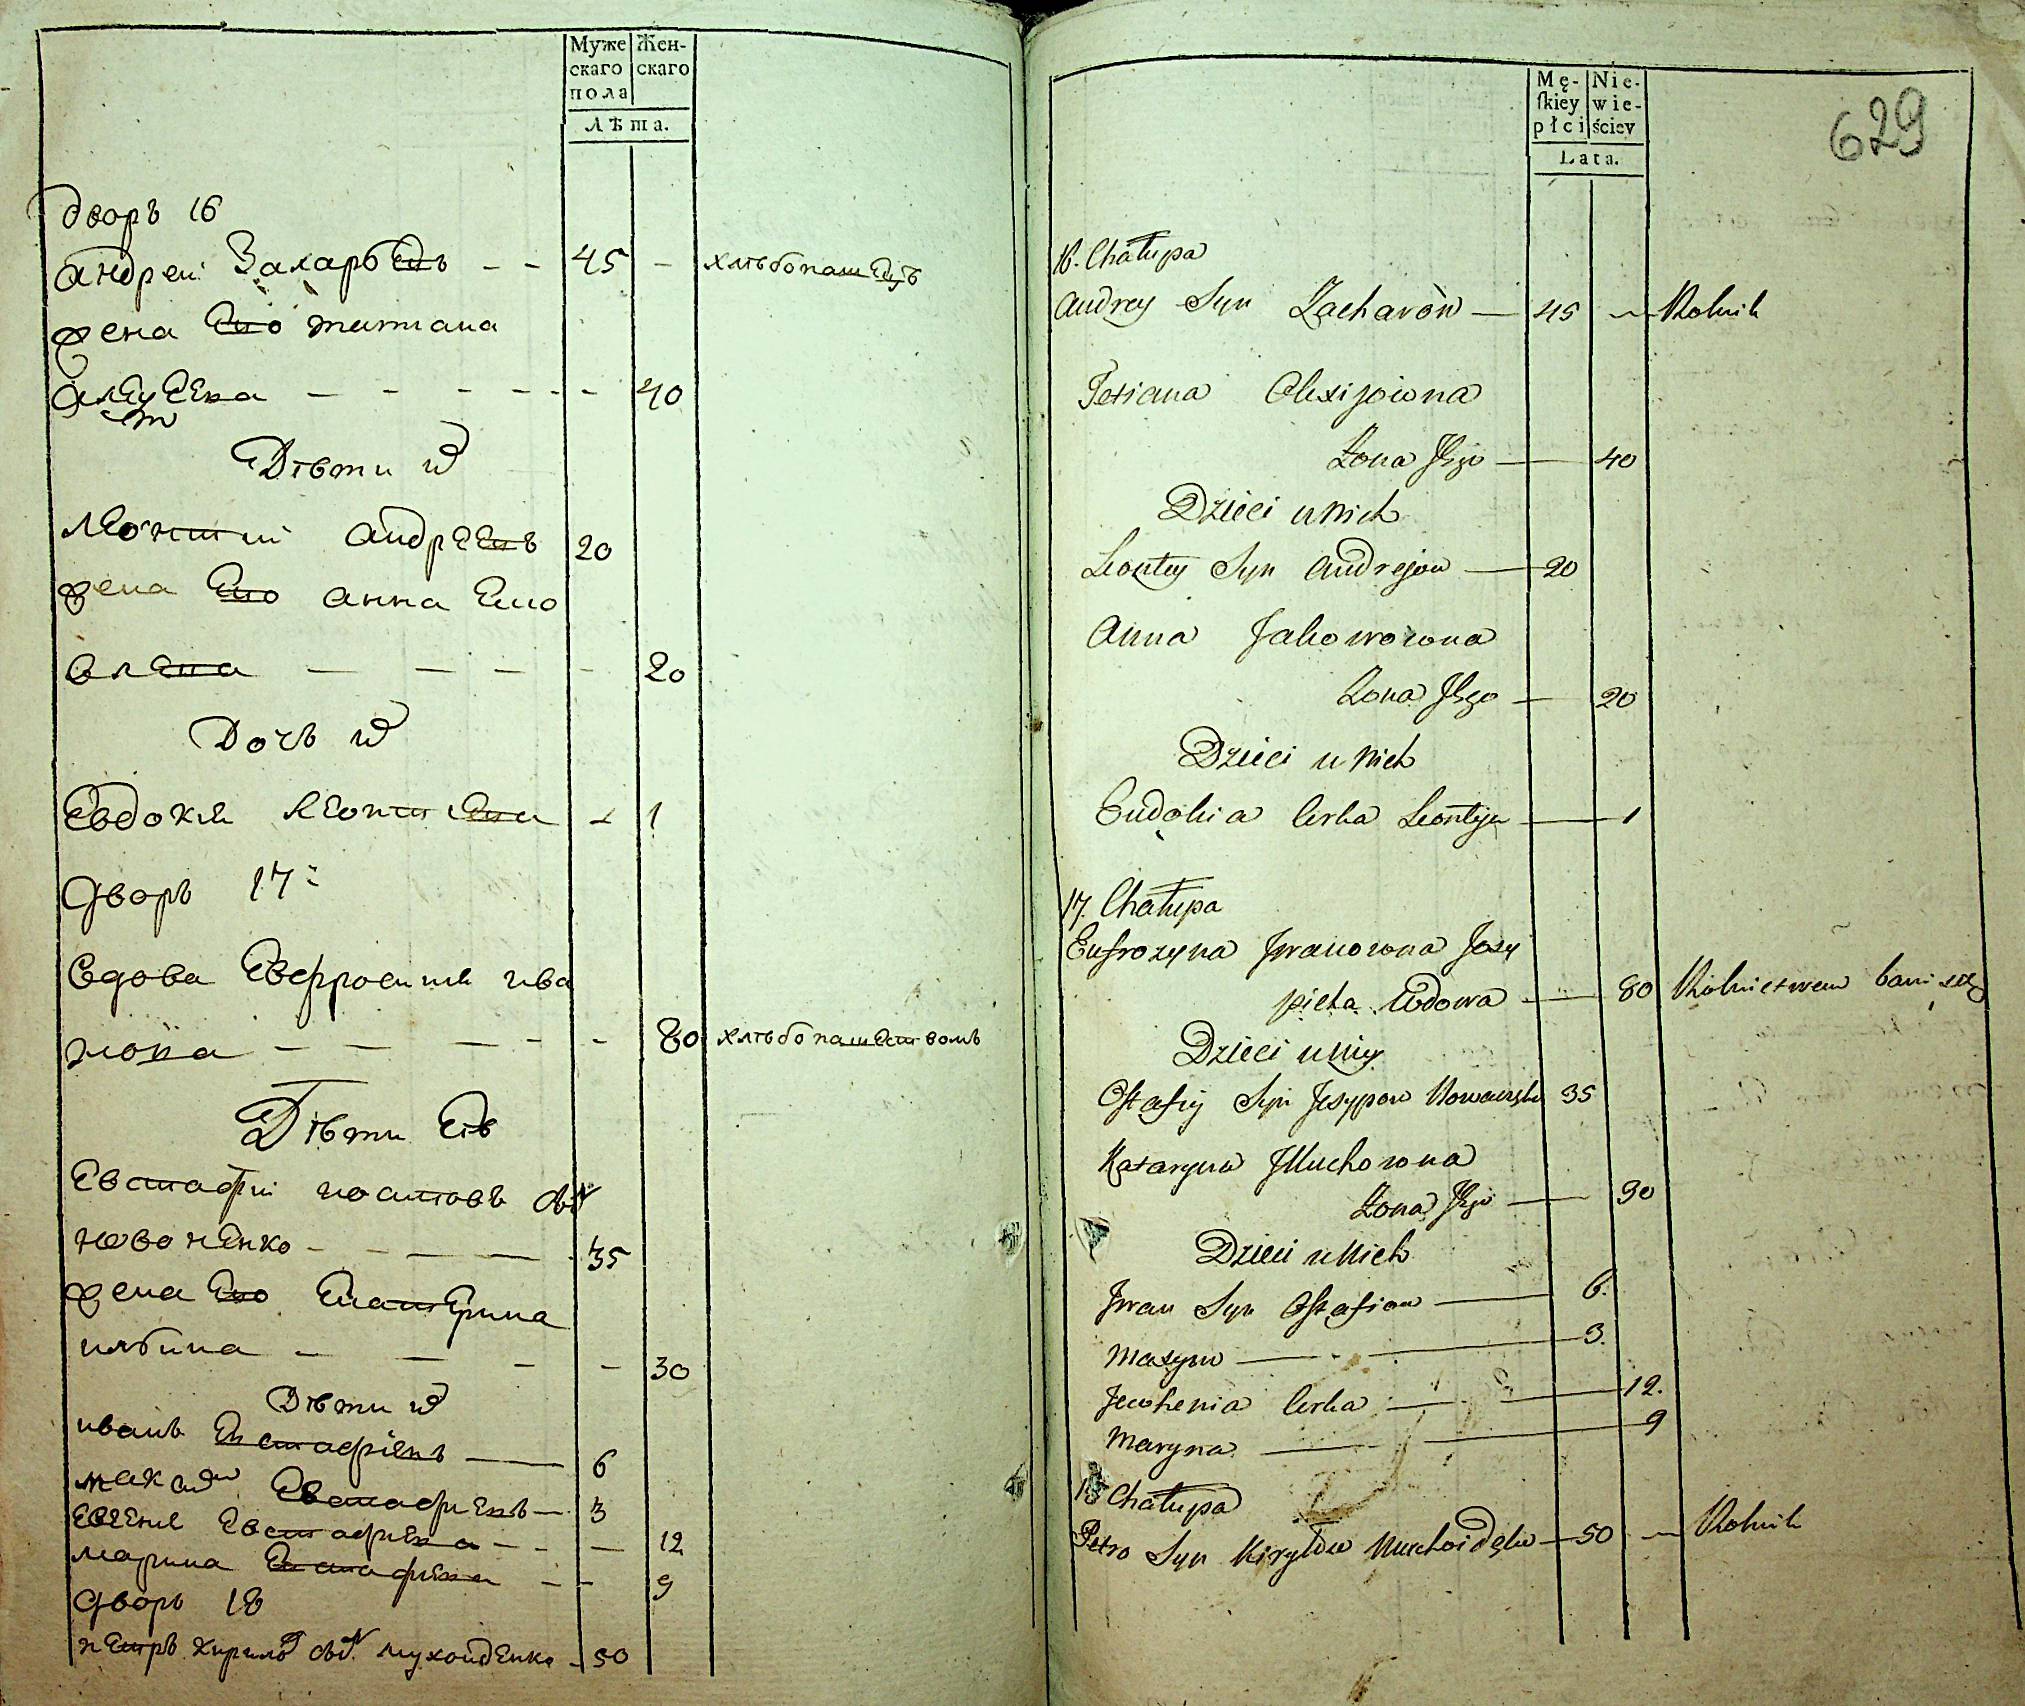 Муже Жен-
скаго скаго
пола
Лѣта.
дворъ 16
андреи Захарьевъ - - 45 - хлѣбопашецъ
жена Его татиана
алеѯеева - - - - - 40
Дѣти их
леонтии андреевъ 20
жена Его анна Еко
влева - - - - 20
Дочь их
Евдокия леонтиева - 1
дворъ 17
вдова Евфросиния ива
нова - - - - - 80 хлѣбопашествомъ
Дѣти Еѣ
Евстафии иосиповъ сынъ
новоченко - - - - 35
жена Его Екатерина
ильина - - - - 30
Дѣти их
иванъ Евстафиевъ - 6
максим Евстафиевъ - 3
евгения Евстафиева - - - 12
марина Евстафиева - - 9
дворъ 18
петръ кирилов сынъ мухоиденко - 50
629
Mę- Nie-
skiey wie-
płci ściey
Lata.
16. Chałupa
Andrey Syn Zacharów — 45 — Rolnik
Tetiana Olexijowna
Żona Jego — 40
Dzieci u Nich
Leontey Syn Andrejow — 20
Anna Jakowowna
Żona Jego — 20
Dzieci u Nich
Eudokia Corka Leontyja — 1
17. Chałupa
Eufrozyna Jwanowna Jozy
picha Wdowa — 80 Rolnictwem bawi się
Dzieci u Niey
Ostafiy Syn Jozypow 35
Kataryna
Żona Jego — 30
Dzieci u Nich
Jwan Syn Ostafiow — 6.
Maxym — 3.
Jewhenia Corka — 12.
Maryna — 9
18 Chałupa
Petro Syn Kiryłow Muchoidęko — 50 — Rolnik